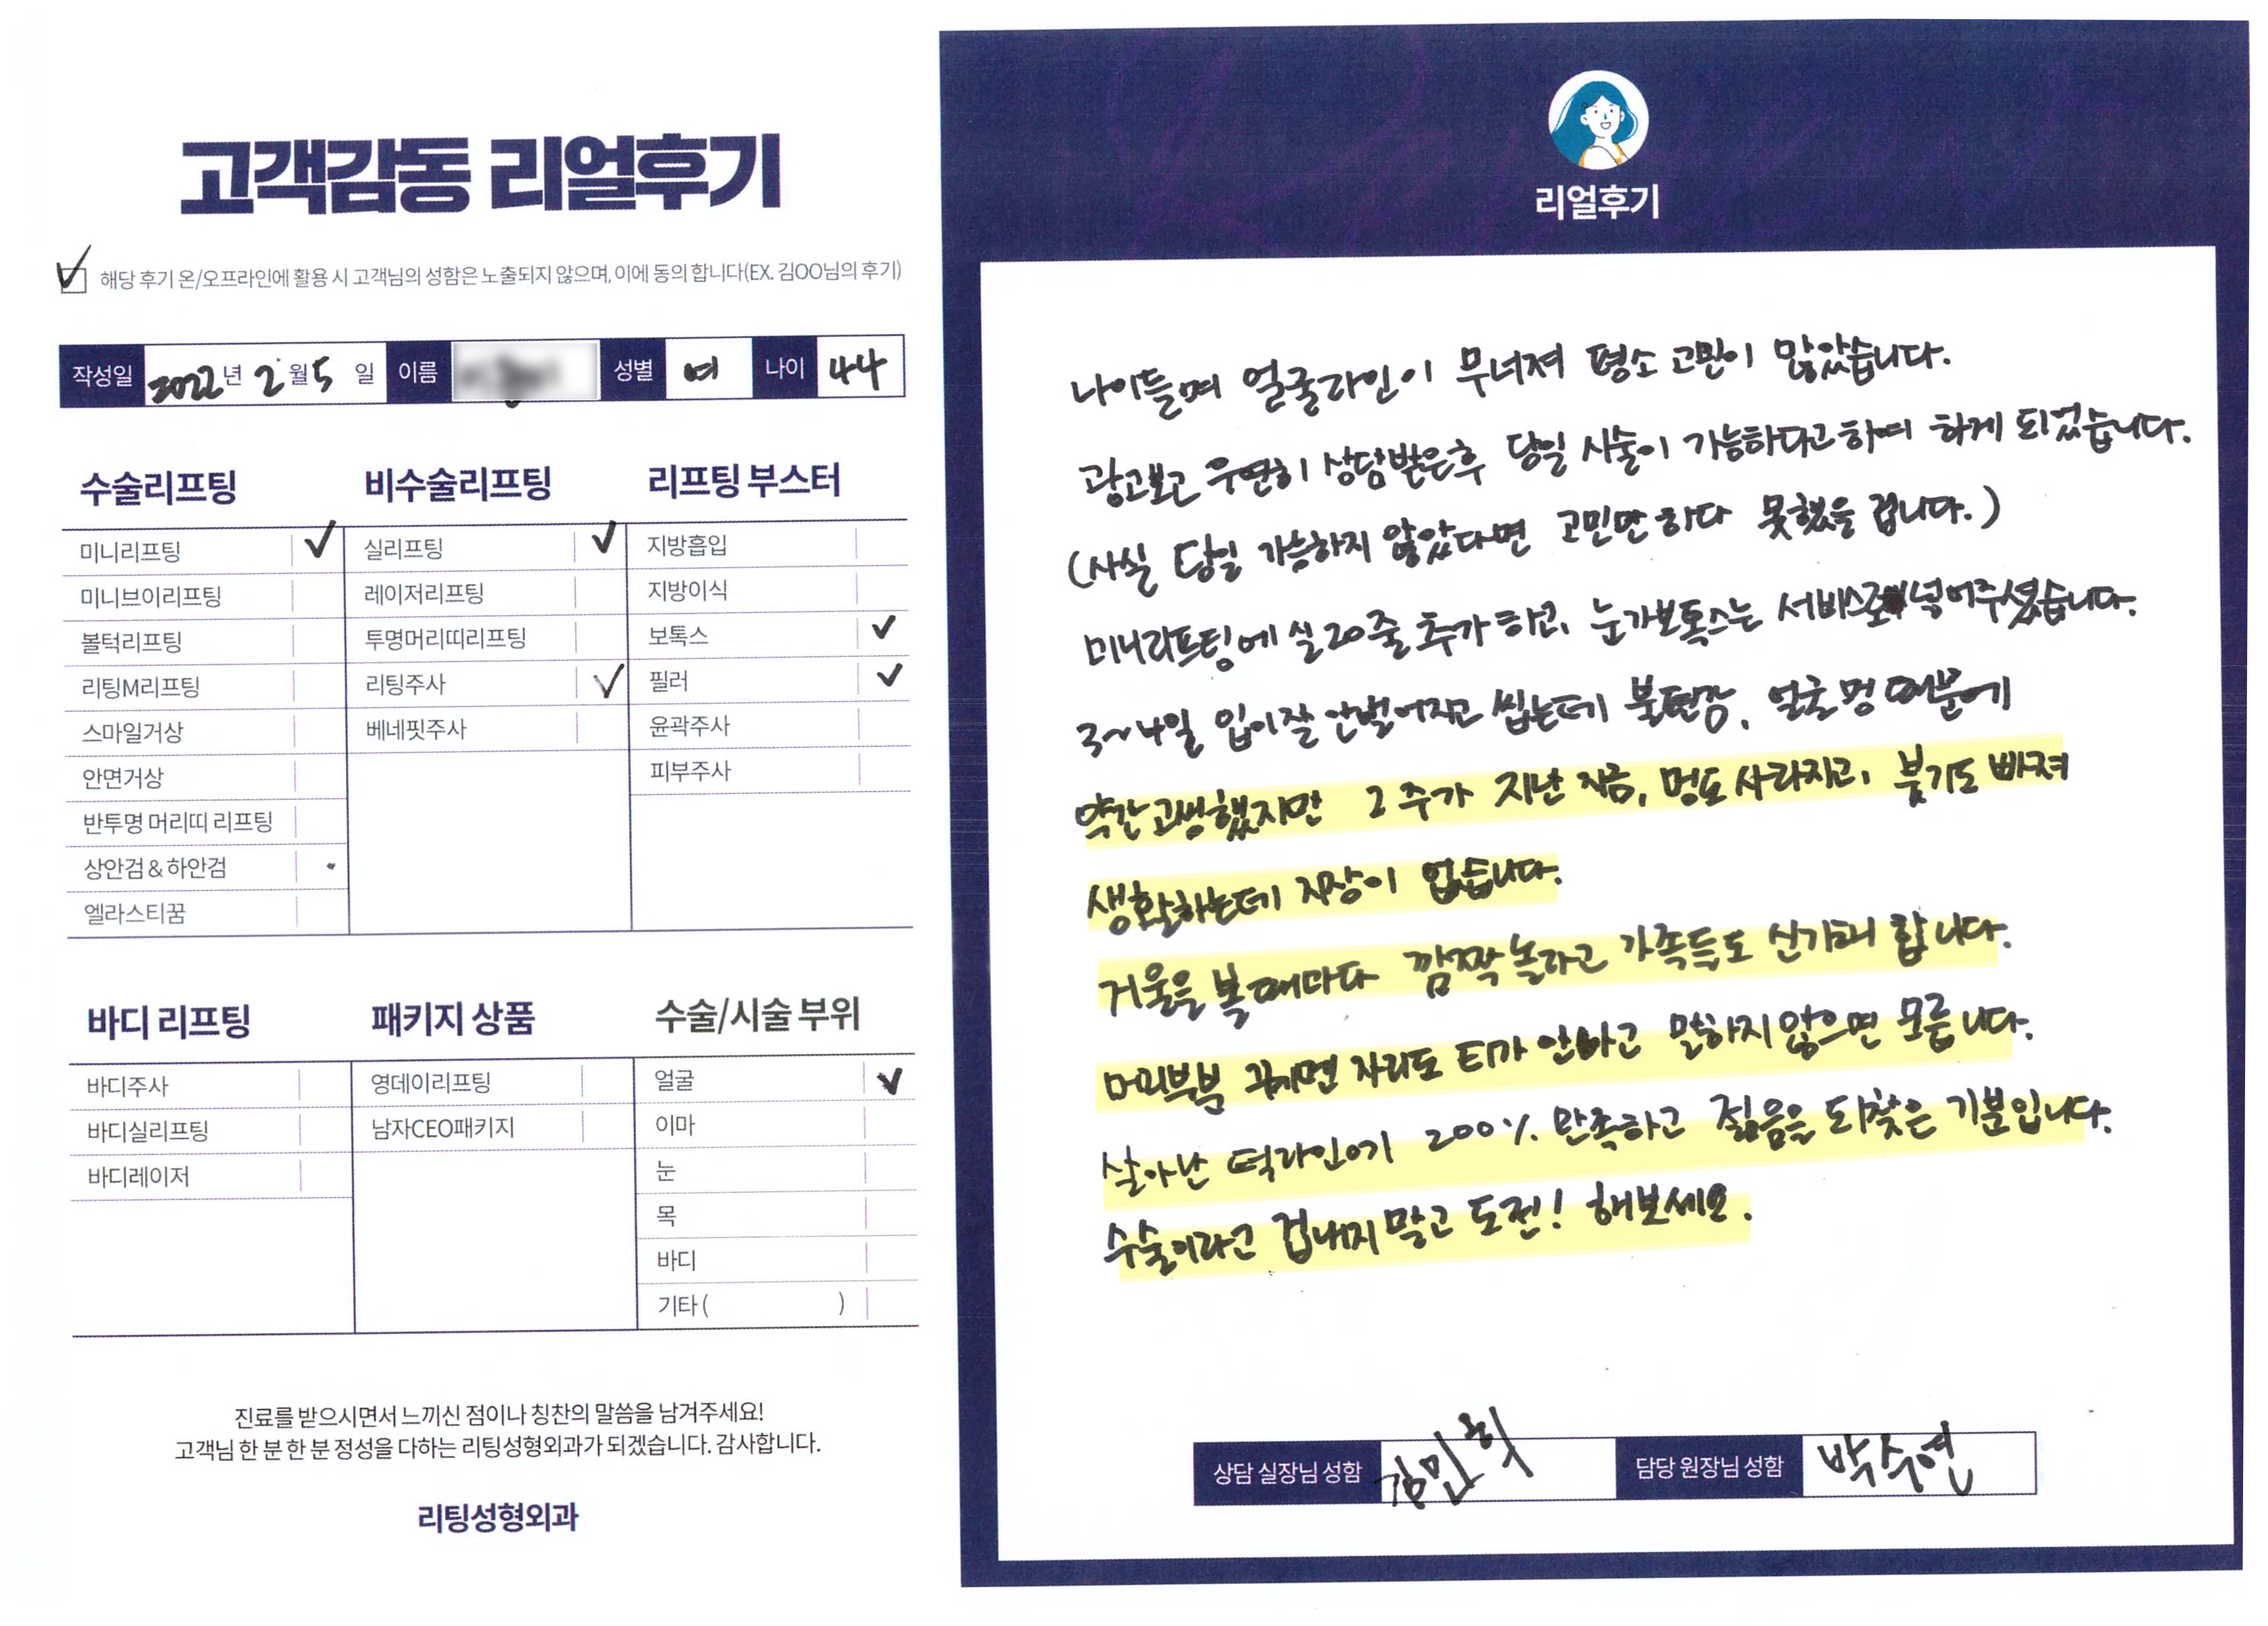 고객감동 리얼후기
해당 후기 온/오프라인에 활용 시 고객님의 성함은 노출되지 않으며, 이에 동의 합니다(EX. 김OO님의 후기)
작성일 2022년 2월 5일 이름 성별 여 나이 44
수술리프팅
미니리프팅
미니브이리프팅
볼턱리프팅
리팅M리프팅
스마일거상
안면거상
반투명 머리띠 리프팅
상안검 & 하안검
엘라스티꿈
비수술리프팅
실리프팅
레이저리프팅
투명머리띠리프팅
리팅주사
베네핏주사
리프팅 부스터
지방흡입
지방이식
보톡스
필러
윤곽주사
피부주사
바디 리프팅
바디주사
바디실리프팅
바디레이저
패키지 상품
영데이리프팅
남자CEO패키지
수술/시술 부위
얼굴
이마
눈
목
바디
기타 ( )
진료를 받으시면서 느끼신 점이나 칭찬의 말씀을 남겨주세요!
고객님 한 분 한 분 정성을 다하는 리팅성형외과가 되겠습니다. 감사합니다.
리팅성형외과
리얼후기
나이들며 얼굴라인이 무너져 평소 고민이 많았습니다.
광고보고 우연히 상담받은후 당일 시술이 가능하다고하여 하게 되었습니다.
(사실 당일 가능하지 않았다면 고민만 하다 못했을 겁니다.)
미니리프팅에 실 20줄 추가하고, 눈가보톡스는 서비스로 넣어주셨습니다.
3~4일 입이잘 안벌어지고 씹는데 불편감, 얼굴 멍 때문에
약간 고생했지만 2주가 지난 지금, 멍도 사라지고, 붓기도 빠져
생활하는데 지장이 없습니다.
거울을 볼때마다 깜짝 놀라고 가족들도 신기해 합니다.
머리부분 꿰메면 자리도 티가 안하고 말하지않으면 모릅니다.
살아난 턱라인에 200% 만족하고 젊음을 되찾은 기분입니다.
수술이라고 겁내지말고 도전! 해보세요.
상담 실장님 성함 김민희 담당 원장님 성함 박수연